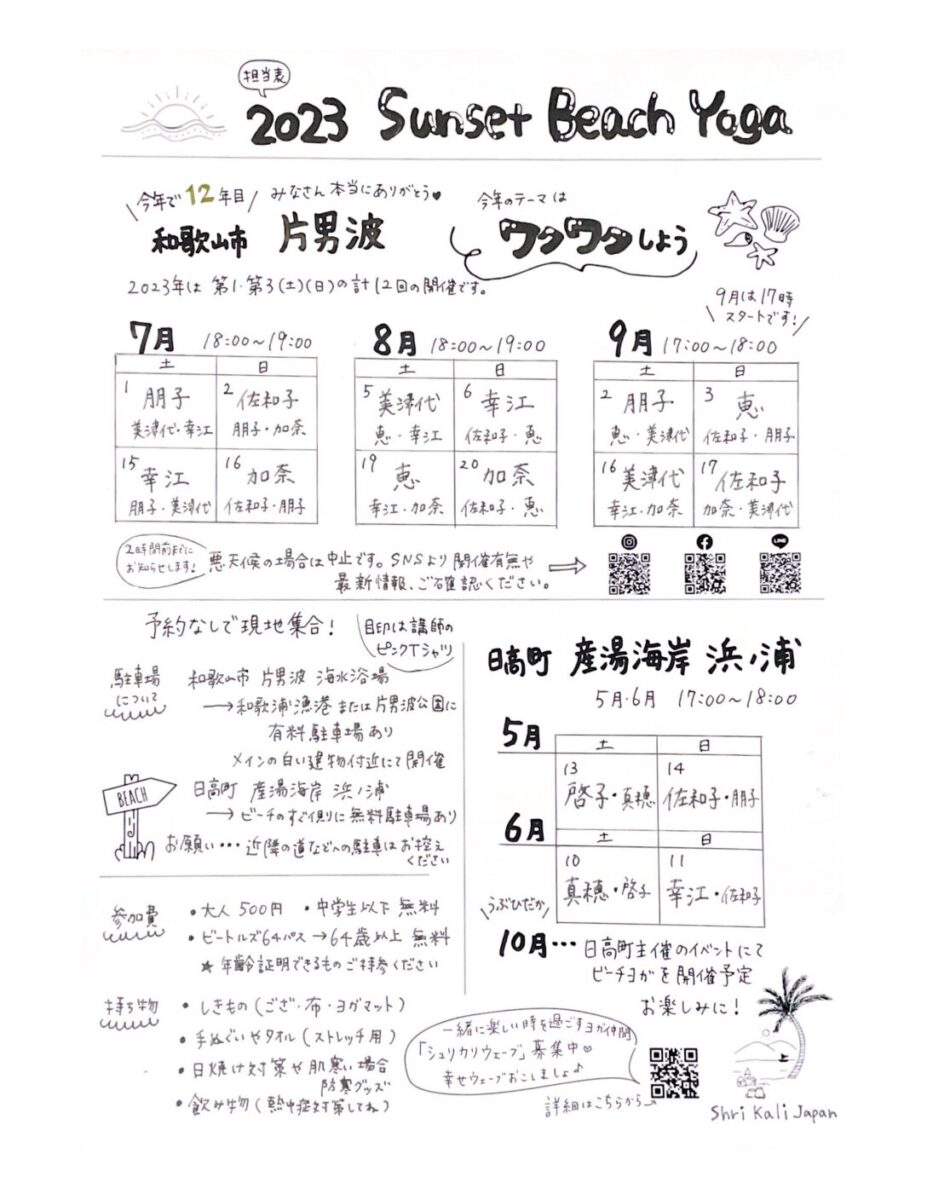 担当表
2023 Sunset Beach Yoga
今年で12年目
みなさん本当にありがとう♥
和歌山市 片男波
今年のテーマは
ワクワクしよう
2023年は 第1・第3(土)(日)の計12回の開催です。
9月は17時
スタートです!
7月 18:00〜19:00
土 日
1 朋子 2 佐和子
美津代・幸江 朋子・加奈
15 幸江 16 加奈
朋子・美津代 佐和子・朋子
8月 18:00〜19:00
土 日
5 美津代 6 幸江
恵・幸江 佐和子・恵
19 恵 20 加奈
幸江・加奈 佐和子・恵
9月 17:00〜18:00
土 日
2 朋子 3 恵
恵・美津代 佐和子・朋子
16 美津代 17 佐和子
幸江・加奈 加奈・美津代
2時間前までに
お知らせします!
悪天候の場合は中止です。SNSより開催有無や
最新情報、ご確認ください。
LINE
予約なしで現地集合!
目印は講師の
ピンクTシャツ
駐車場
について
和歌山市 片男波 海水浴場
→和歌浦漁港または片男波公園に
有料駐車場あり
メインの白い建物付近にて開催
BEACH
日高町 産湯海岸 浜ノ浦
→ビーチのすぐ側に無料駐車場あり
お願い…近隣の道などへの駐車はお控え
ください
参加費
・大人500円 ・中学生以下 無料
・ビートルズ64パス→64歳以上 無料
★年齢証明できるものご持参ください
持ち物
・しきもの(ござ・布・ヨガマット)
・手ぬぐいやタオル(ストレッチ用)
・日焼け対策や肌寒い場合
防寒グッズ
・飲み物(熱中症対策してね)
日高町 産湯海岸 浜ノ浦
5月・6月 17:00〜18:00
5月
土 日
13 14
啓子・真穂 佐和子・朋子
6月
土 日
10 11
真穂・啓子 幸江・佐和子
うぶひだか
10月…日高町主催のイベントにて
ビーチヨガを開催予定
お楽しみに!
一緒に楽しい時を過ごすヨガ仲間
「シュリカリウェーブ」募集中♡
幸せウェーブおこしましょ♪
詳細はこちらから→
Shri Kali Japan